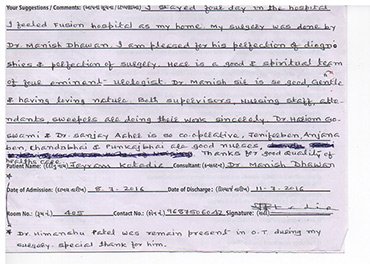 Your Suggestions / Comments: I stayed four day in the hospital
I feeled Fusion hospital as my home. My surgery was done by
Dr. Manish Dhawan. I am pleased for his perfection of diagno
shies & perfection of surgery. Here is a good & spiritual team
of four eminent urologist Dr. Manish sir is so good, Gentle
& having loving nature. Both supervisors, Nursing staff, atte-
ndants, sweepers are doing their work sincerely. Dr. Hariom Go
swami & Dr. Sanjay is so co-oplative, Jenifeeben, Anjana
ben, Chandabhai & Punkajbhai are good nurses,
Thanks for good quality of
healths care.
Patient Name: Jayram Katadia Consultant: Dr. Manish Dhawan
Date of Admission: 8-3-2016 Date of Discharge: 11-3-2016
Room No.: 405 Contact No.: 9687506042 Signature:
* Dr. Himanshu Patel was remain present in O.T during my
surgery. special thank for him.